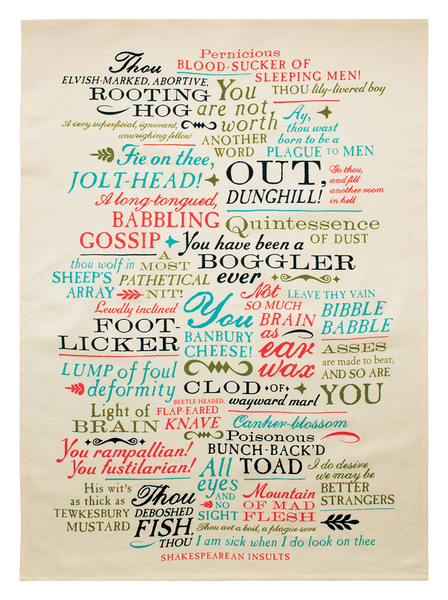 Pernicious
BLOOD-SUCKER OF
SLEEPING MEN!
Thou
ELVISH-MARKED, ABORTIVE,
ROOTING
HOG
You
are not
worth
ANOTHER
WORD
THOU lily-livered boy
A very superficial, ignorant,
unweighing fellow
Ay,
thou wast
born to be a
PLAGUE TO MEN
Fie on thee,
JOLT-HEAD!
OUT,
DUNGHILL!
Go thou,
and fill
another room
in hell
A long-tongued,
BABBLING
GOSSIP
Quintessence
OF DUST
You have been a
BOGGLER
ever
thou wolf in
SHEEP'S
ARRAY
A
MOST
PATHETICAL
NIT!
Not
SO MUCH
BRAIN
as
ear
wax
LEAVE THY VAIN
BIBBLE
BABBLE
Lewdly inclined
FOOT-
LICKER
You
BANBURY
CHEESE!
ASSES
are made to bear,
AND SO ARE
YOU
LUMP of foul
deformity
CLOD •OF•
wayward marl
Light of
BRAIN
BEETLE HEADED,
FLAP-EARED
KNAVE
Canker-blossom
Poisonous
BUNCH-BACK'D
TOAD
You rampallian!
You fustilarian!
All
eyes
AND
NO
SIGHT
I do desire
we may be
BETTER
STRANGERS
His wit's
as thick as
TEWKESBURY
MUSTARD
Thou
DEBOSHED
FISH,
THOU
Mountain
OF MAD
FLESH
Thou art a boil, a plague-sore
I am sick when I do look on thee
SHAKESPEAREAN INSULTS